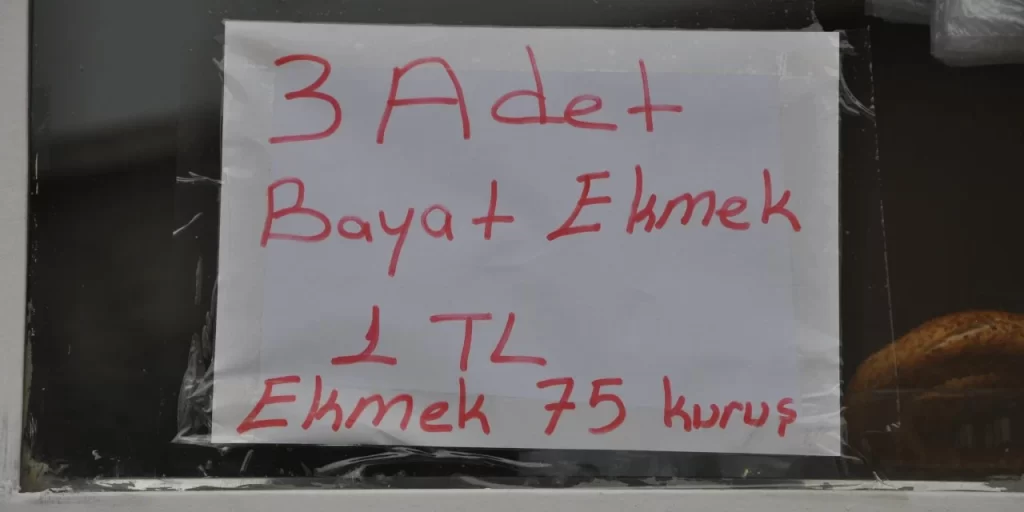 3 Adet
Bayat Ekmek
1 TL
Ekmek 75 kuruş